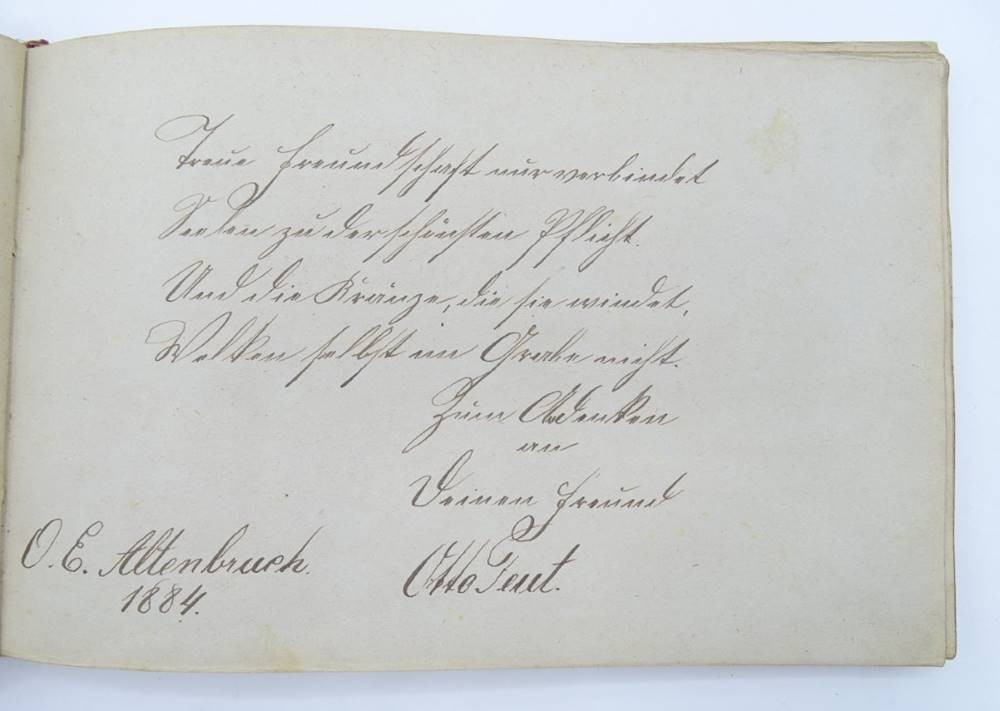 Treue Freundschaft nur verbindet
Seelen zu der schönsten Pflicht.
Und die Kränze, die sie windet,
Welken selbst im Grabe nicht.
Zum Andenken
an
Deinen Freund
Otto Teut.
O. E. Altenbruch.
1884.